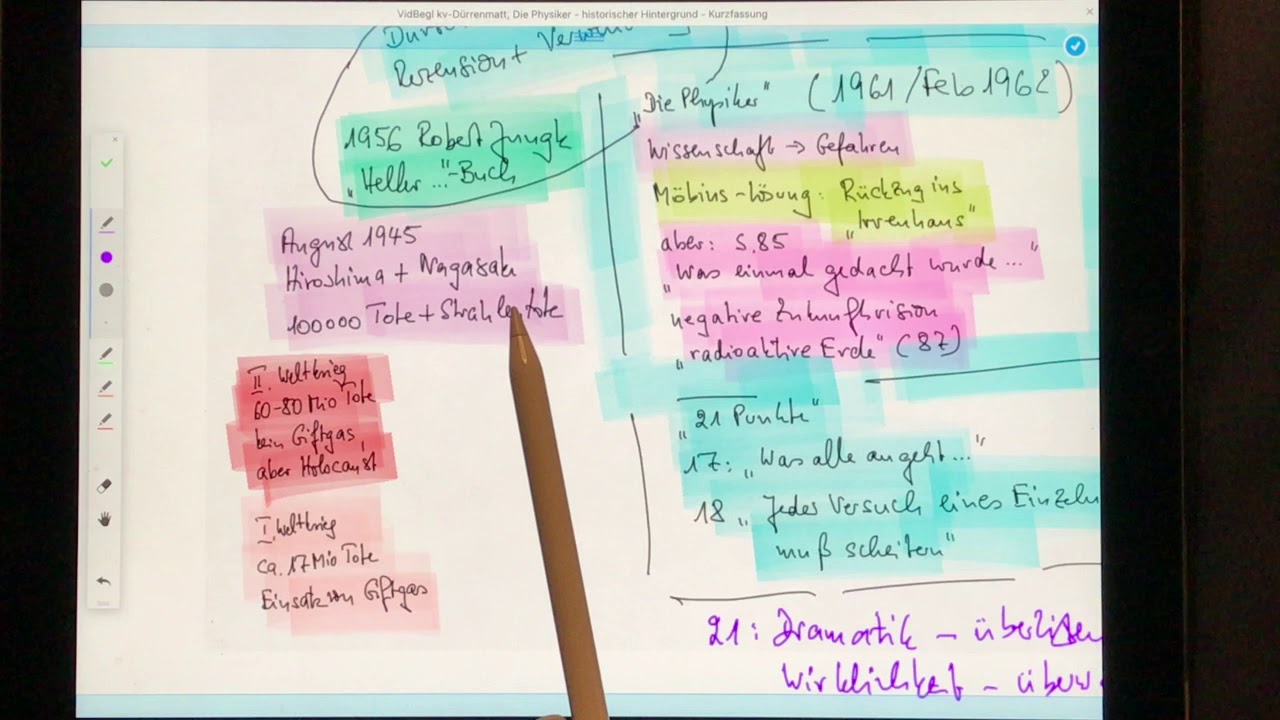 VidBegl kv-Dürrenmatt, Die Physiker - historischer Hintergrund - Kurzfassung
Rezension +
1956 Robert Jungk
"Heller ..."-Buch
August 1945
Hiroshima + Nagasaki
100000 Tote + Strahlentote
II. Weltkrieg
60-80 Mio Tote
kein Giftgas,
aber Holocaust
I. Weltkrieg
ca. 17 Mio Tote
Einsatz von Giftgas
"Die Physiker" (1961/Feb 1962)
Wissenschaft → Gefahren
Möbius-Lösung: Rückzug ins
"Irrenhaus"
aber: S.85
"Was einmal gedacht wurde ..."
negative Zukunftsvision
"radioaktive Erde" (87)
"21 Punkte"
17: "Was alle angeht..."
18 "Jeder Versuch eines Einzeln
muß scheitern"
21: Dramatik - überlisten
Wirklichkeit - überw